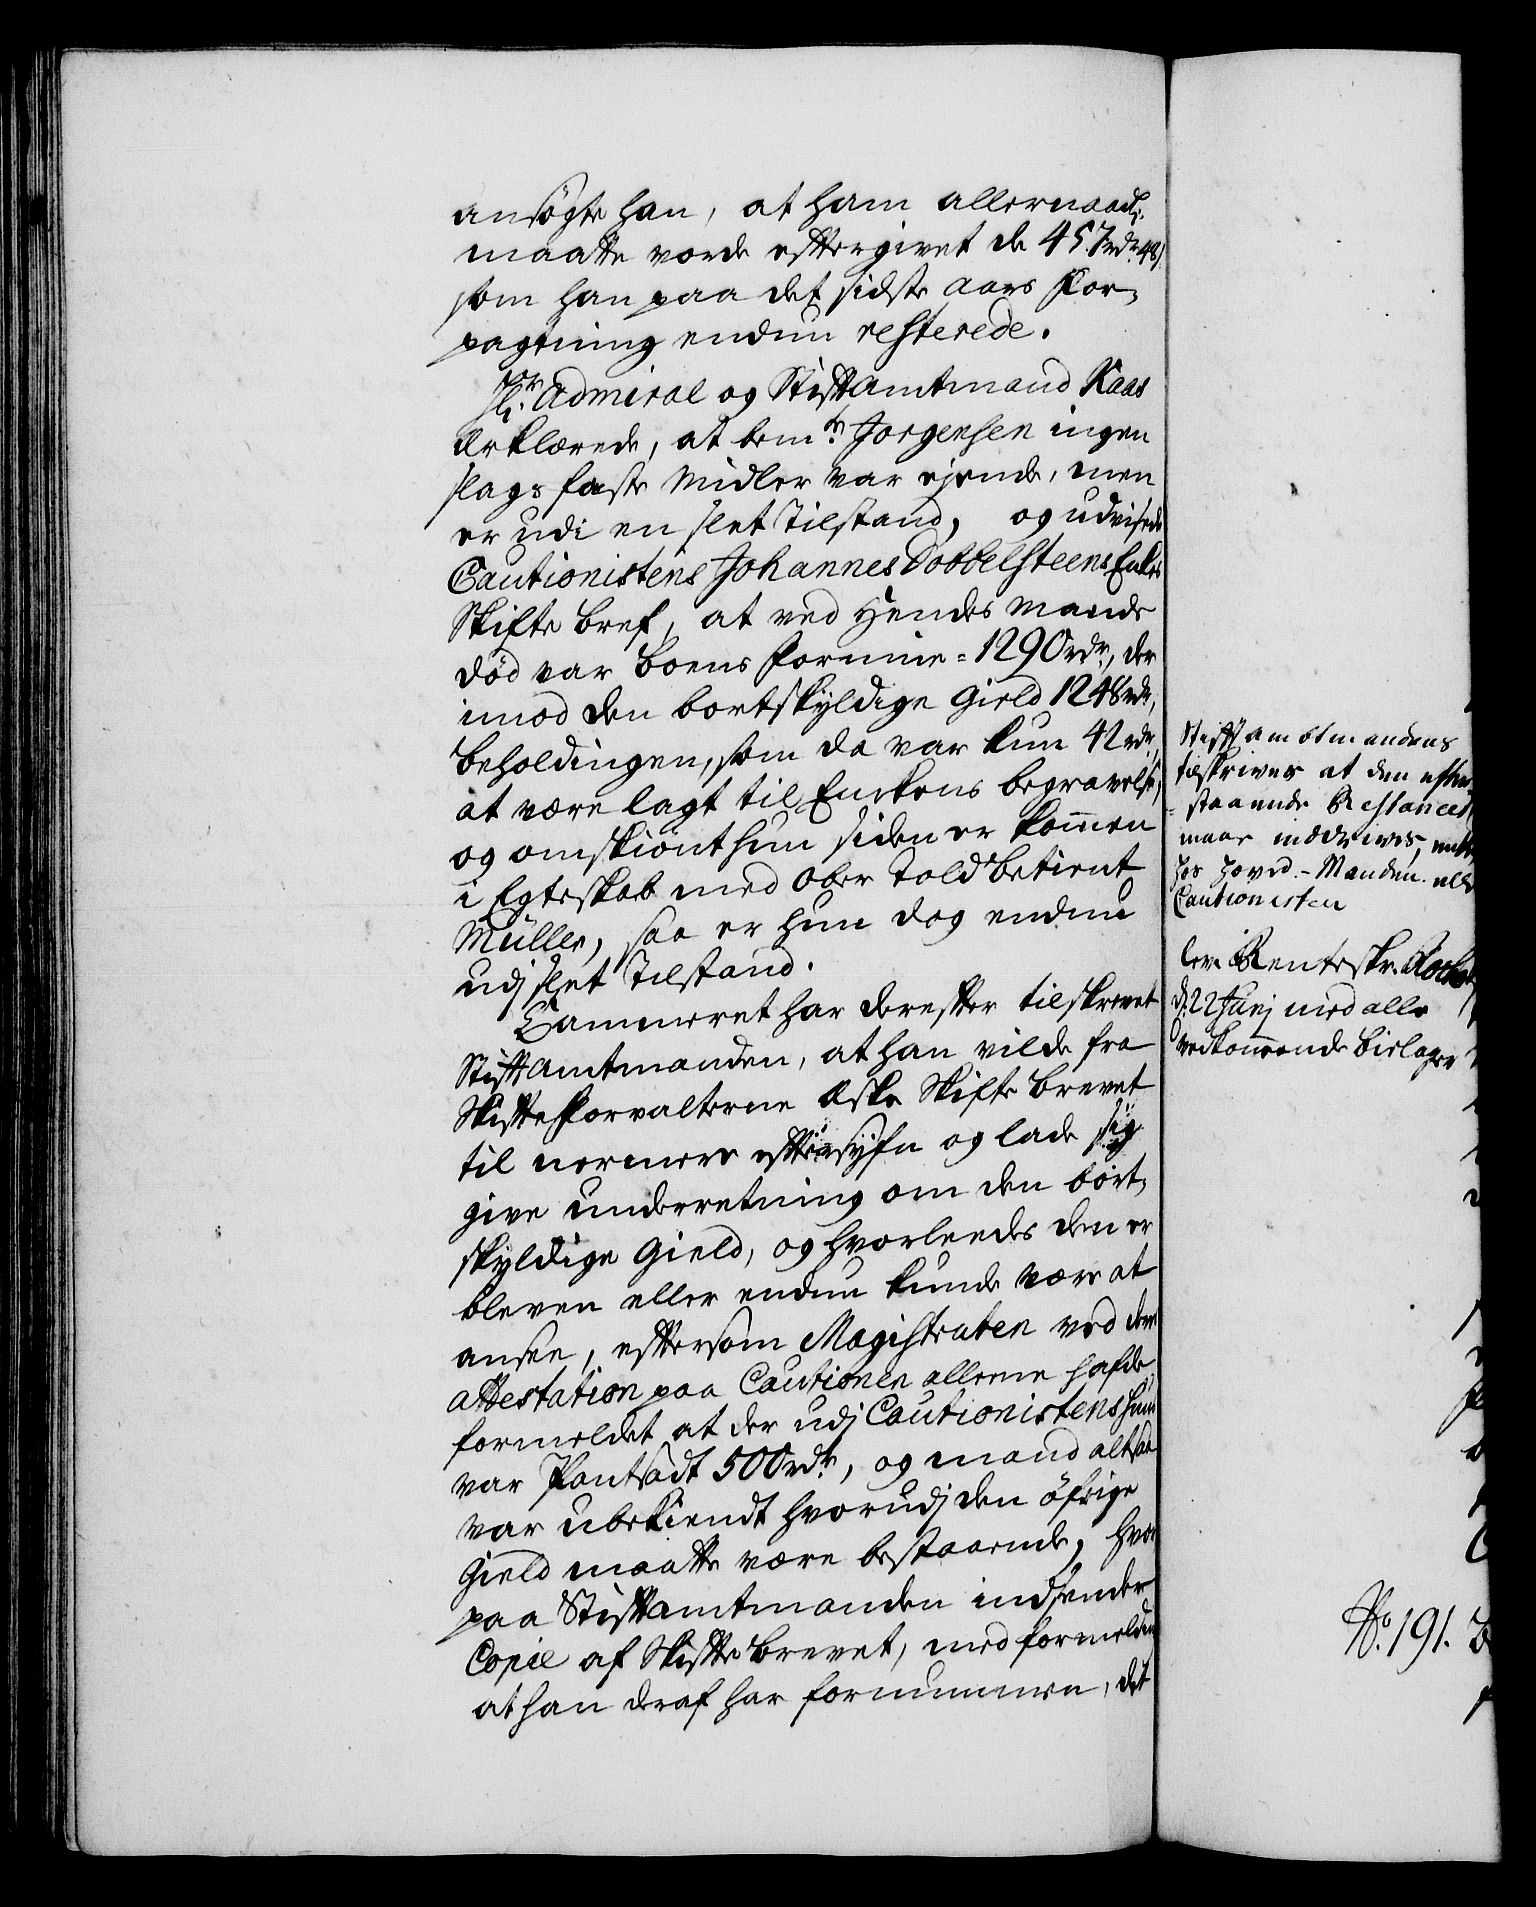 ansøgte han, at ham allernaadl.
maatte vorde efftergivet de 457 rdr. 48 s.
som han paa det sidste aars For-
pagtning endnu resterede.
Hr. Admiral og Stiftamtmand Kaas
Erklærede, at bemte. Jørgensen ingen
slags faste Midler var ejende, men
er udi en slet Tilstand, og udvisede
Cautionistens Johannes Dobbelsteens Enkes
Skifte bref, at ved Hendes Mands
Død var boens Formue = 1290 rdr., der
imod den bortskyldige Gield 1248 rdr.,
beholdingen, som da var kun 42 rdr.,
at være lagt til Enckens begravelse,
og omskiønt hun siden er kommen
i Egteskab med Ober Toldbetient
Müller, saa er hun dog endnu
udj slet Tilstand.
Cammeret har derefter tilskrevet
Stiftamtmanden, at han vilde fra
Skifteforvalterne æske Skifte brevet
til nermere efftersyfn og lade sig
give underretning om den bort-
skyldige Gield, og hvorleedes den er
bleven eller endnu kunde være at
ansee, efftersom Magistraten ved dens
attestation paa Cautionen allene hafde
formeldet at der udj Cautionistens huus
var Pantsadt 500 rdr., og mand altsaa
var ubekiendt hvorudj den öfrige
Gield maatte være bestaaende, hvor
paa Stiftamtmanden indsender
Copie af Skifte brevet, med formelding
at han deraf har fornummen, det
Stiftambtmandens
tilskrives at den efter-
staaende Restance
maae inddrives, enten
hos Hoved-Manden eller
Cautionisten
lev. Renteskr.
d. 22 Junj med alle
vedkommende bielager
No. 191.